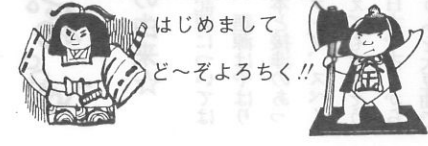 はじめまして
ど～ぞよろちく!!
金